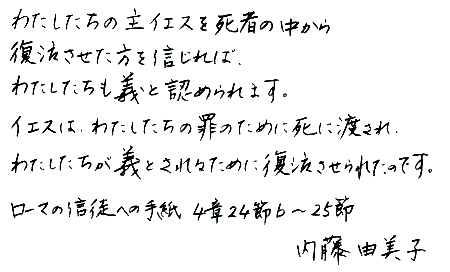 わたしたちの主イエスを死者の中から
復活させた方を信じれば、
わたしたちも義と認められます。
イエスは、わたしたちの罪のために死に渡され、
わたしたちが義とされるために復活させられたのです。
ローマの信徒への手紙 4章24節b〜25節
内藤由美子